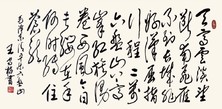 天高雲淡望
断南飞雁不到
长城非好汉屈指
行程二万
六盘山上高
峰红旗漫卷
西风今日长缨
在手何时缚住
苍龙
毛泽东词清平乐六盘山